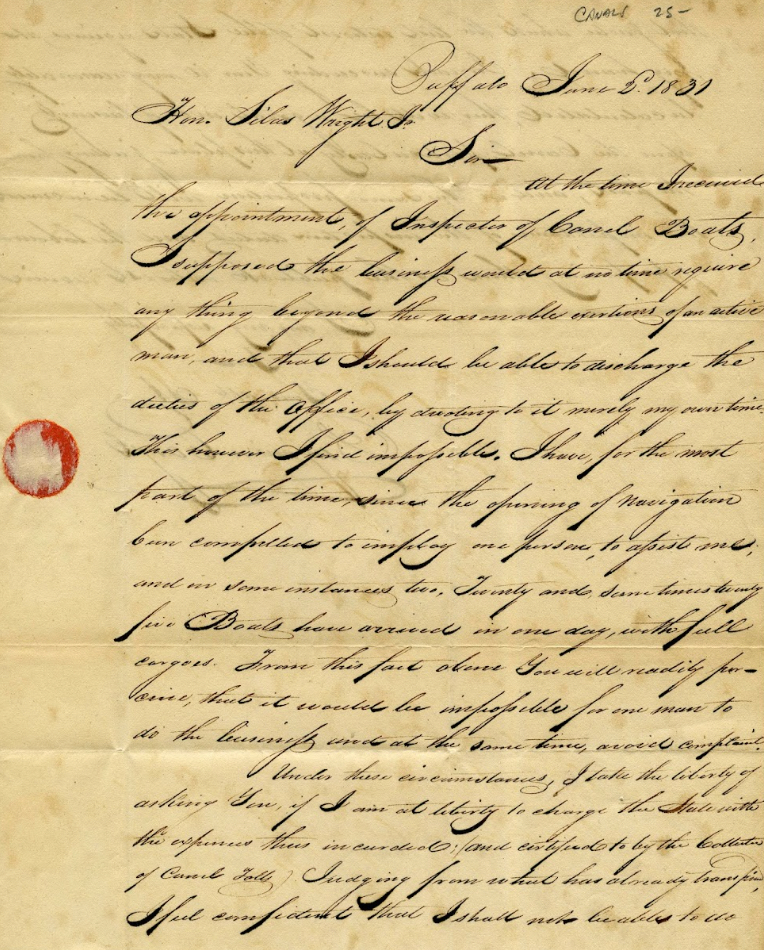 CANALS 25-
Buffalo June 2d. 1831
Hon. Silas Wright Jr
Sir—
At the time I received
the appointment, of Inspector of Canal Boats,
I supposed the business would at no time require
any thing beyond the reasonable exertions of an active
man, and that I should be able to discharge the
duties of the Office, by devoting to it merely my own time.
This however I find impossible. I have, for the most
part of the time, since the opening of Navigation
been compelled to employ one person, to assist me,
and in some instances two. Twenty and sometimes twenty
five Boats have arrived in one day, with full
cargoes. From this fact alone You will readily per-
ceive, that it would be impossible for one man to
do the business and at the same time, avoid complaint.
Under these circumstances, I take the liberty of
asking You, if I am at liberty to charge the State with
the expenses thus incurded; (and certified to by the Collector
of Canal Tolls) Judging from what has already transpired,
I feel confident that I shall not be able to do